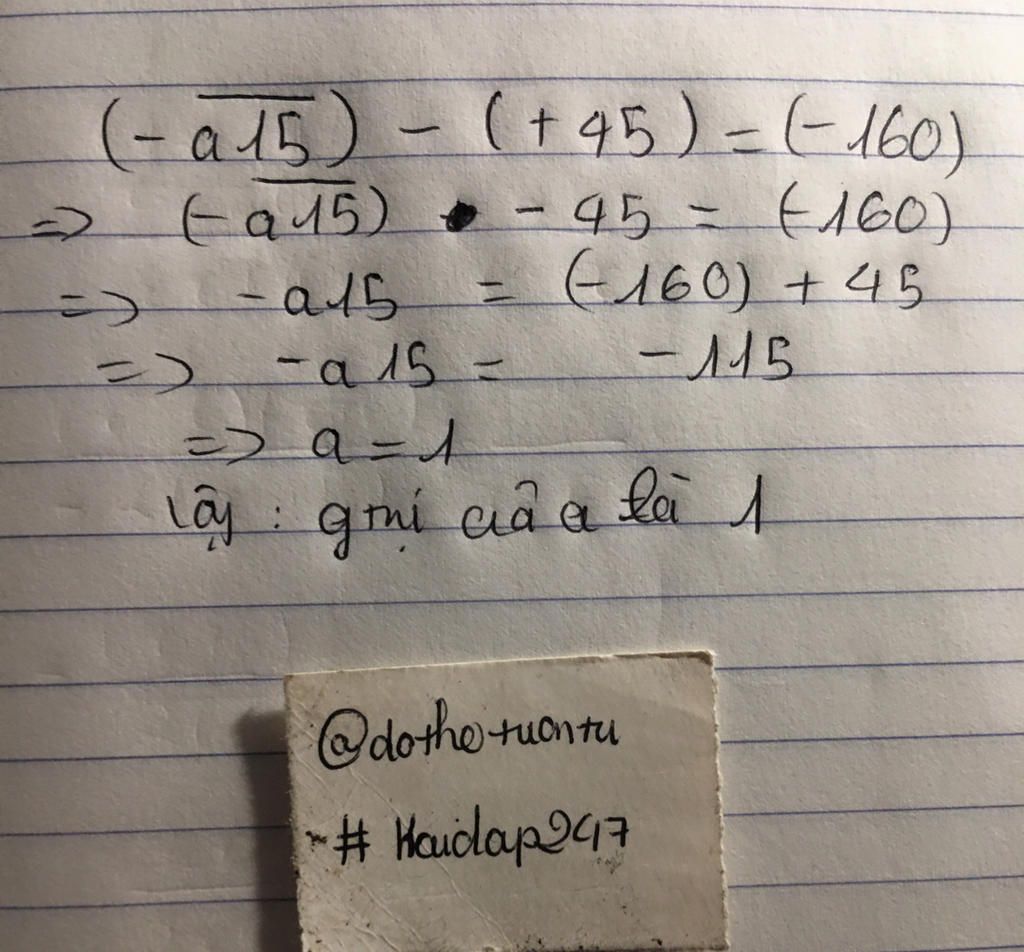 (-a̅1̅5̅) - (+45) = (-160)
=> (-a̅1̅5̅) - 45 = (-160)
=> -a15 = (-160) + 45
=> -a15 = -115
=> a = 1
Vậy : g trị của a là 1
@dothetuantu
# Hoidap247